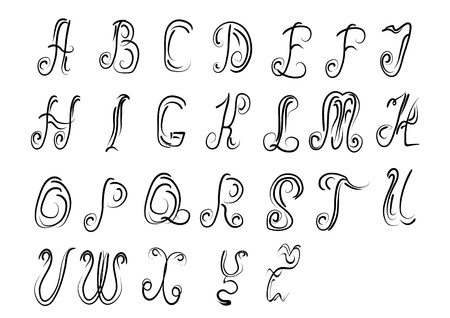 A B C D E F J
H I G K L M N
O P Q R S T U
V W X Y Z